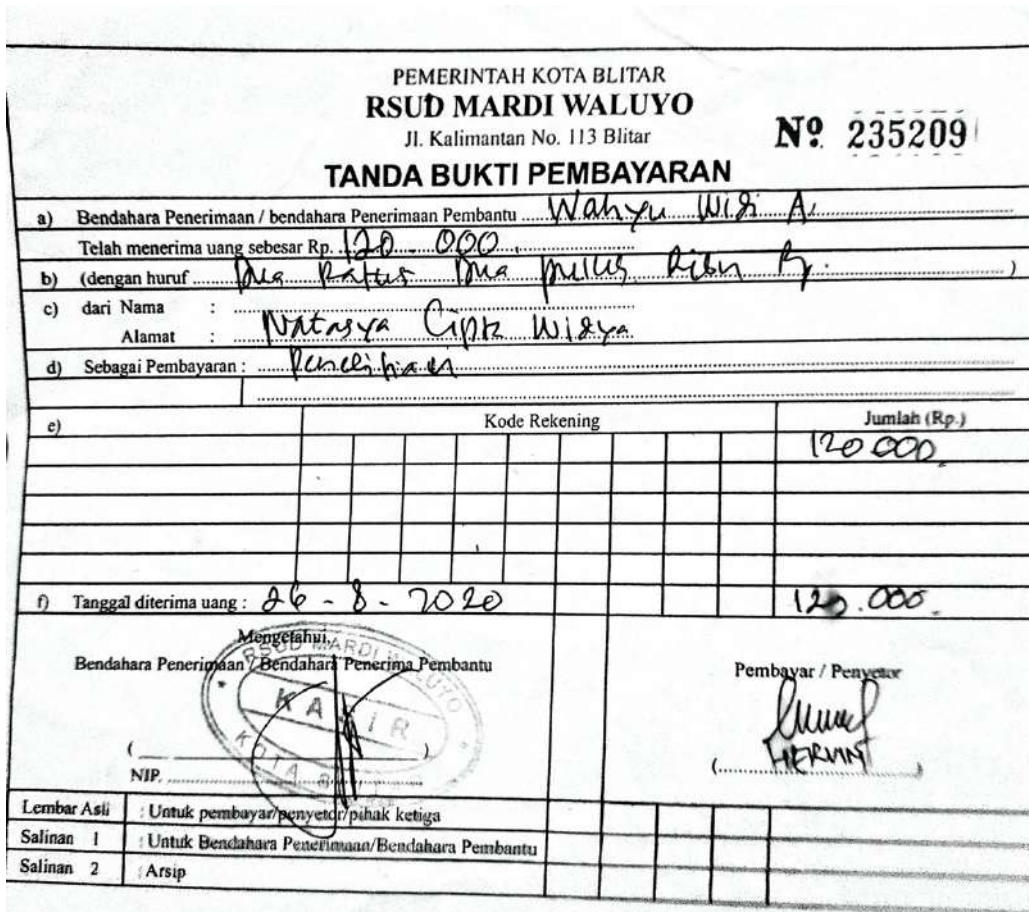 PEMERINTAH KOTA BLITAR
RSUD MARDI WALUYO
Jl. Kalimantan No. 113 Blitar
Nº 235209
TANDA BUKTI PEMBAYARAN
a) Bendahara Penerimaan / bendahara Penerimaan Pembantu Wahyu Widi A.
Telah menerima uang sebesar Rp. 120 000
b) (dengan huruf Dua Ratus Dua puluh Ribu Rp. )
c) dari Nama :
Alamat : Natasya Cipta Widya
d) Sebagai Pembayaran : Penelitian
e) Kode Rekening Jumlah (Rp.)
120.000
f) Tanggal diterima uang : 26 - 8 - 2020 120.000
Mengetahui,
Bendahara Penerimaan / Bendahara Penerima Pembantu
Pembayar / Penyetor
RSUD MARDI WALUYO
KASIR
KOTA
NIP.
Lembar Asli : Untuk pembayar/penyetor/pihak ketiga
Salinan 1 : Untuk Bendahara Penerimaan/Bendahara Pembantu
Salinan 2 : Arsip